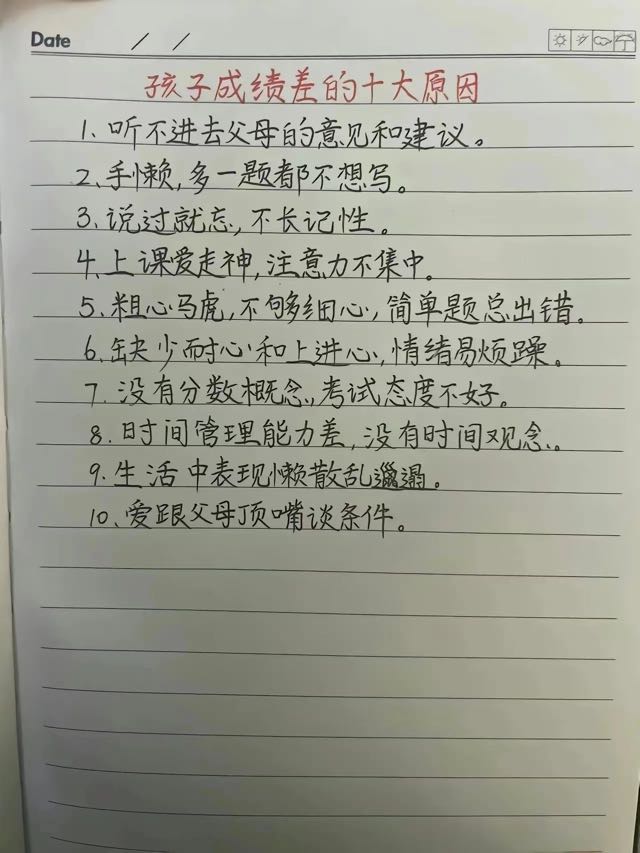 Date / /
孩子成绩差的十大原因
1、听不进去父母的意见和建议。
2、手懒,多一题都不想写。
3、说过就忘,不长记性。
4、上课爱走神,注意力不集中。
5、粗心马虎,不够细心,简单题总出错。
6、缺少耐心和上进心,情绪易烦躁。
7、没有分数概念,考试态度不好。
8、时间管理能力差,没有时间观念。
9、生活中表现懒散乱邋遢。
10、爱跟父母顶嘴谈条件。